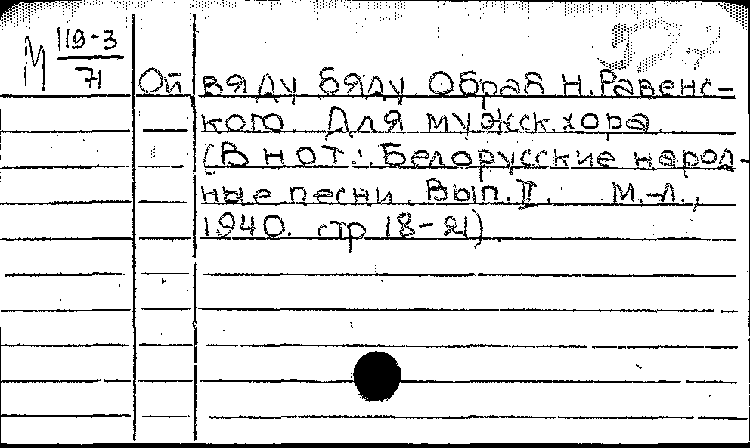 М 119-3
71
Ой вяду бяду Обраб Н. Равенс-
кого. Для мужск. хора.
(В нот.: Белорусские народ-
ные песни. Вып. II. М.-Л.,
1940. стр 18-21)